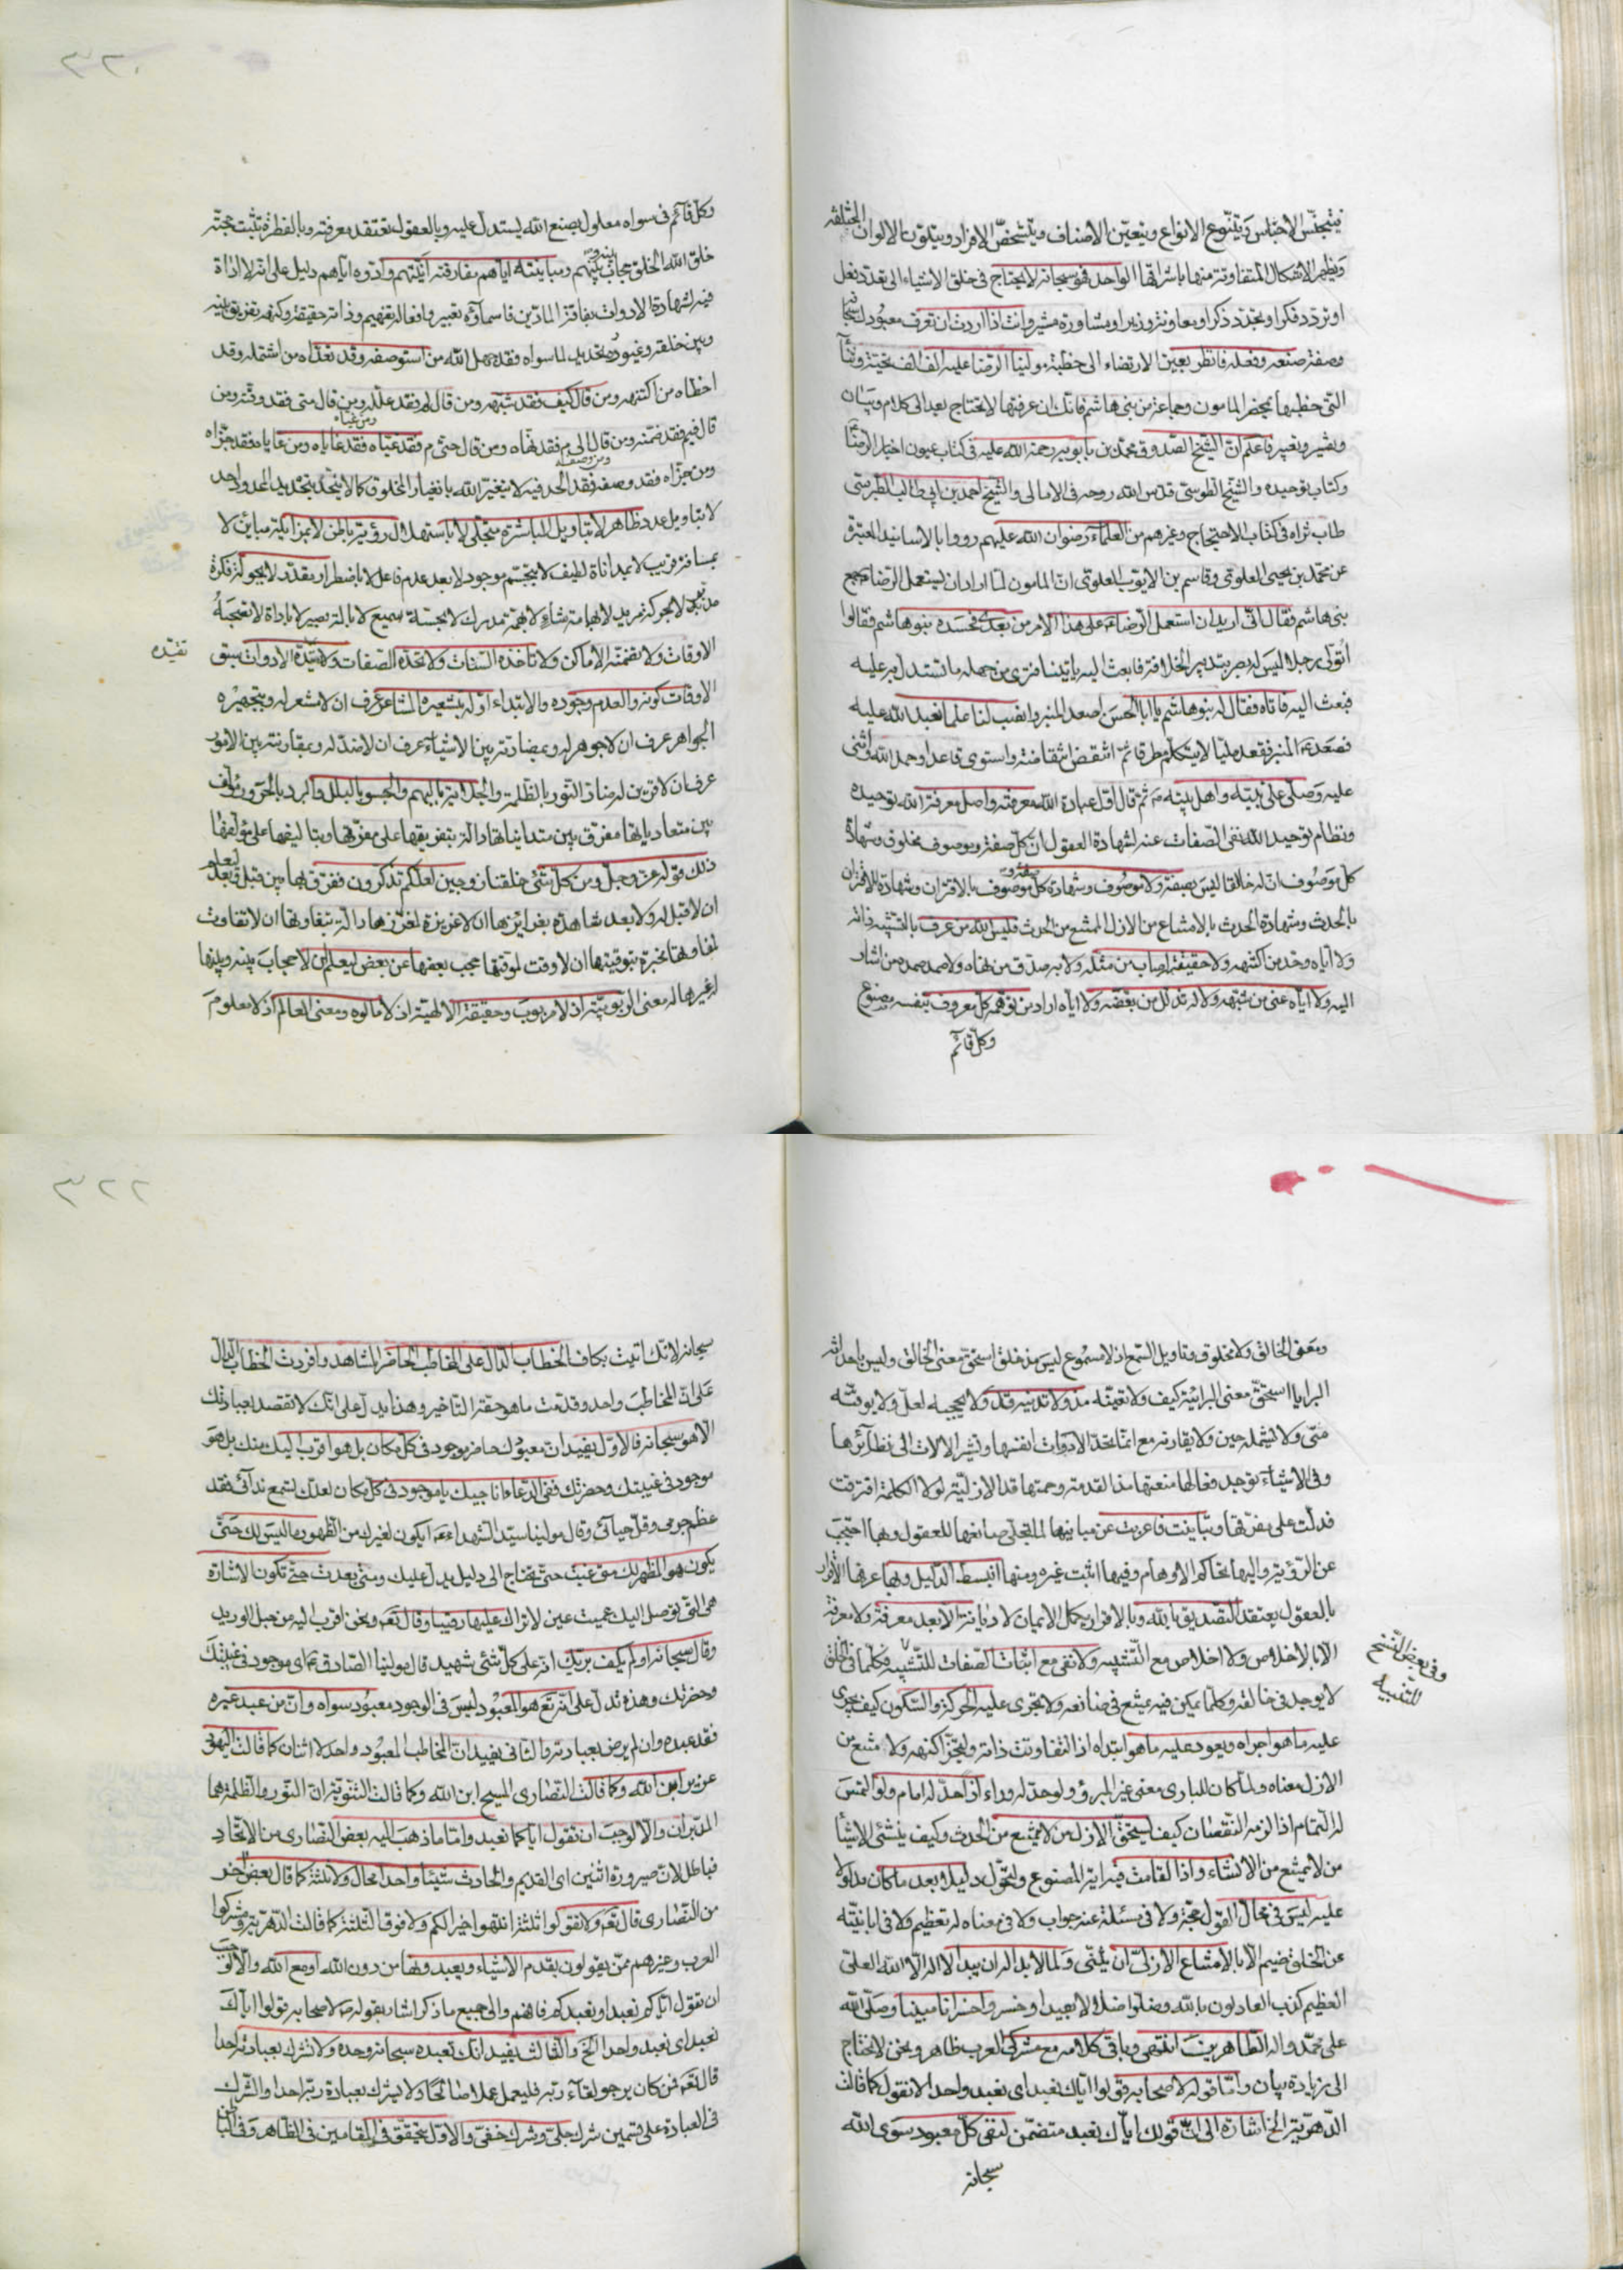 يتجنّس الاجناس ويتنّوع الانواع ويتعيّن الاصناف ويتشخصّ الافراد ويتلوّن الالوان المختلفة
ويظهر الاشكال المتفاوتة منها باشراقها الواحد فهو سبحانه لا يحتاج فى خلق الاشياء الى تعدّد فعل
او تردّد فكر او تجدّد ذكر او معاونة وزير او مشاورة مشير وانت اذا اردت ان تعرف معبودك سبحانه
وصفة صنعه وفعله فانظر بعين الارتضاء الى خطبة مولينا الرّضا عليه الف الف تحيّة وثنآء
التى خطبها بمحضر المامون وجماعة من بنى هاشم فانّك ان عرفتها لا تحتاج بعد الى كلام وبيان
وتفسير وتعبير فاعلم انّ الشيخ الصّدوق محمّد بن بابويه رحمة الله عليه فى كتاب عيون اخبار الرّضا
وكتاب توحيده والشيخ الطوسى قدّس الله روحه فى الامالى والشيخ احمد بن ابى طالب الطبرسى
طاب ثراه فى كتاب الاحتجاج وغيرهم من العلمآء رضوان الله عليهم رووا بالاسانيد المعتبرة
عن محمّد بن يحيى العلوى وقاسم بن الايّوب العلوى انّ المامون لمّا اراد ان يستعمل الرّضا ع جمع
بنى هاشم فقال انّى اريد ان استعمل الرّضا ع على هذا الامر من بعدى فحسده بنو هاشم فقالوا
اتولّى رجلا ليس له بصر بتدبير الخلافة فابعث اليه ياتينا فترى من جهله ما تستدل به عليه
فبعث اليه فاتاه فقال له بنو هاشم يا ابا الحسن اصعد المنبر وانصب لنا علما نعبد الله عليه
فصعد ع المنبر فقعد مليّا لا يتكلّم مطرقا ثمّ انتفض انتفاضة واستوى قاعدا وحمد الله واثنى
عليه وصلّى على نبيّه واهل بيته ص ثم قال اوّل عبادة الله معرفته واصل معرفة الله توحيده
ونظام توحيد الله نفى الصّفات عنه لشهادة العقول ان كلّ صفة وموصوف مخلوق وشهادة
كلّ موصوف انّ له خالقا ليس بصفة ولا موصوف وشهادة كلّ صفة وموصوف بالاقتران وشهادة الاقتران
بالحدث وشهادة الحدث بالامتناع من الازل الممتنع من الحدث فليس الله من عرف بالتشبيه ذاته
ولا ايّاه وحّد من اكتنهه ولا حقيقته اصاب من مثّله ولا به صدّق من نهّاه ولا صمد صمده من اشار
اليه ولا ايّاه عنى من شبّهه ولا له تذلّل من بعّضه ولا ايّاه اراد من توهّمه كلّ معروف بنفسه مصنوع
وكلّ قآئم
وكلّ قآئم فى سواه معلول بصنع الله يستدلّ عليه وبالعقول تعتقد معرفته وبالفطرة تثبت حجّته
خلق الله الخلق حجاب بينه وبينهم ومباينته ايّاهم مفارقته اينيّتهم وادوه ايّاهم دليل على ان لا اداة
فيه لشهادة الادوات بفاقة المادّين فاسمآؤه تعبير وافعاله تفهيم وذاته حقيقة وكنهه تفريق بينه
وبين خلقه وغيوره تحديد لما سواه فقد جهل الله من استوصفه وقد تعدّاه من اشتمله وقد
اخطاه من اكتنهه ومن قال كيف فقد شبّهه ومن قال لم فقد علّله ومن قال متى فقد وقّته ومن
قال فيم فقد ضمّنه ومن قال الى م فقد نهّاه ومن قال حتى م فقد غيّاه ومن غيّاه فقد غاياه ومن غاياه فقد جزّاه
ومن جزّاه فقد وصفه ومن وصفه فقد الحد فيه لا يتغيّر الله بانغيار المخلوق كما لا يتحدّد بتحديد المحدود احد
لا بتاويل عدد ظاهر لا بتاويل المباشرة متجلّى لا باستهلال رؤية باطن لا بمزايلة مباين لا
بمسافة قريب لا بمداناة لطيف لا بتجسّم موجود لا بعد عدم فاعل لا باضطرار مقدّر لا بجول فكرة
مدبّر لا بحركة مريد لا بهمامة شاء لا بهمّة مدرك لا بمجسّة سميع لا بالة بصير لا باداة لا تصحبه
الاوقات ولا تضمّنه الاماكن ولا تاخذه السّنات ولا تحدّه الصّفات ولا تقيّده الادوات سبق
تفيده
الاوقات كونه والعدم وجوده والابتداء ازله بتشعيره المشاعر عرف ان لا مشعر له وبتجهيره
الجواهر عرف ان لا جوهر له وبمضادّته بين الاشيآء عرف ان لا ضدّ له وبمقارنته بين الامور
عرف ان لا قرين له ضادّ النّور بالظلمة والجلاية بالبهم والجسو بالبلل والبرد بالحرور مؤلّف
بين متعادياتها مفرّق بين متدانياتها دالّة بتفريقها على مفرّقها وبتاليفها على مؤلّفها
ذلك قوله عزّ وجلّ ومن كلّ شئ خلقنا زوجين لعلّكم تذكّرون ففرّق بها بين قبل وبعد ليعلم
ان لا قبل له ولا بعد شاهدة بغرايزها ان لا غريزة لمغرّزها دالّة بتفاوتها ان لا تفاوت
لمفاوتها مخبرة بتوقيتها ان لا وقت لموقّتها حجب بعضها عن بعض ليعلم ان لا حجاب بينه وبينها
غيرها له معنى الرّبوبيّة اذ لا مربوب وحقيقة الالهيّة اذ لا مالوه ومعنى العالم اذ لا معلوم
ومعنى الخالق ولا مخلوق وتاويل السّمع اذ لا مسموع ليس مذ خلق استحقّ معنى الخالق وليس باحداثه
البرايا استحقّ معنى البرائيّة كيف ولا تغيّبه مذ ولا تدنيه قد ولا يحجبه لعلّ ولا يوقّته
متى ولا يشمله حين ولا يقارنه مع انّما تحدّ الادوات انفسها وتشير الالات الى نظآئرها
وفى الاشيآء يوجد فعالها منعتها مذ القدمة وحمتها قد الازليّة لولا الكلمة افترقت
فدلّت على مفرّقها وتباينت فاعربت عن مباينها لما تجلّى صانعها للعقول وبها احتجب
عن الرّؤية واليها تحاكم الاوهام وفيها اثبت غيره ومنها انبسط الدّليل وبها عرفها الاقرار
بالعقول يعتقد التصديق بالله وبالاقرار يكمل الايمان لا ديانة الّا بعد معرفة ولا معرفة
الّا بالاخلاص ولا اخلاص مع التّشبيه ولا نفى مع اثبات الصّفات للتّشبيه فكلّما فى الخلق
وفى بعض النّسخ
للتنبيه
لا يوجد فى خالقه وكلّما يمكن فيه يمتنع فى صانعه ولا تجرى عليه الحركة والسّكون كيف يجرى
عليه ما هو اجراه ويعود عليه ما هو ابتداه اذا لتفاوتت ذاته ولتجزّا كنهه ولامتنع من
الازل معناه ولما كان للبارى معنى غير المبرؤ ولو حدّ له ورآء اذا حدّ له امام ولو التمس
له التّمام اذا لزمه النّقصان كيف يستحقّ الازل من لا يمتنع من الحدث وكيف ينشئ الاشيآء
من لا يمتنع من الانشاء واذا لقامت فيه اية المصنوع ولتحوّل دليلا بعد ما كان مدلولا
عليه ليس فى محال القول حجّة ولا فى مسئلة عنه جواب ولا فى معناه له تعظيم ولا فى ابانته
عن الخلق ضيم الّا بالامتناع الازلىّ ان يثنّى ولما لا بدا له ان يبدا لا اله الّا الله العلىّ
العظيم كذب العادلون بالله وضلّوا ضلالا بعيدا وخسروا خسرانا مبينا وصلّى الله
على محمّد واله الطّاهرين انتهى وباقى كلامه مع مشركى العرب ظاهر ونحن لا نحتاج
الى زيادة بيان وامّا قوله لاصحابه قولوا ايّاك نعبد اى نعبد واحدا لا نقول كما قالت
الدّهريّة الخ اشارة الى انّ قولك ايّاك نعبد متضمّن لنفى كلّ معبود سوى الله
سبحانه
سبحانه لانّك اتيت بكاف الخطاب الدّالّ على المخاطب الحاضر المشاهد وافردت الخطاب الدّالّ
على انّ المخاطب واحد وقدّمت ما هو حقّه التّاخير وهذا يدلّ على انّك لا تقصد بعبادتك
الّا هو سبحانه فالاوّل يفيد انّ معبودك حاضر موجود فى كلّ مكان بل هو اقرب اليك منك بل هو
موجود فى غيبتك وحضرتك ففى الدّعاء اناجيك يا موجود فى كلّ مكان لعلّك تسمع ندآئى فقد
عظم جرمى وقلّ حيآئى وقال مولينا سيّد الشهداء ع ايكون لغيرك من الظّهور ما ليس لك حتّى
يكون هو المظهر لك متى غبت حتّى تحتاج الى دليل يدلّ عليك ومتى بعدت حتى تكون الاشارة
هى التى توصل اليك عميت عين لا تراك عليها رقيبا وقال تع ونحن اقرب اليه من حبل الوريد
وقال سبحانه اولم يكف بربّك انّه على كلّ شئ شهيد قال مولينا الصّادق ع اى موجود فى غيبتك
وحضرتك وهذه تدلّ على انّه تع هو المعبود ليس فى الوجود معبود سواه وانّ من عبد غيره
فقد عبده وان لم يرض بعبادته والثّانى يفيد انّ المخاطب المعبود واحد لا اثنان كما قالت اليهود
عزير ابن الله وكما قالت النّصارى المسيح ابن الله وكما قالت الثنويّة انّ النّور والظلمة هما
المدبّران والّا لوجب ان تقول ايّاكما نعبد وامّا ما ذهب اليه بعض النّصارى من الاتّحاد
فباطل لانّ صيرورة اثنين اى القديم والحادث شيئا واحدا محال ولا ثلثة كما قال بعض اخر
من النّصارى قال تع ولا تقولوا ثلثة انتهوا خيرا لكم ولا فوق الثّلثة كما قالت الدّهريّة ومشركوا
العرب وغيرهم ممّن يقولون بقدم الاشيآء ويعبدونها من دون الله او مع الله والّا لوجب
ان نقول ايّاكم نعبد او نعبدكم فافهم والى جميع ما ذكر اشار بقوله ص لاصحابه قولوا ايّاك
نعبد اى نعبد واحدا الخ والثّالث يفيد انّك تعبده سبحانه وحده ولا تشرك بعبادته احدا
قال تع فمن كان يرجو لقآء ربّه فليعمل عملا صالحا ولا يشرك بعبادة ربّه احدا والشّرك
فى العبادة على قسمين شرك جلىّ وشرك خفىّ والاوّل يتحقّق فى المقامين فى الظّاهر وفى الباطن
٣٢٠
٣٢٢